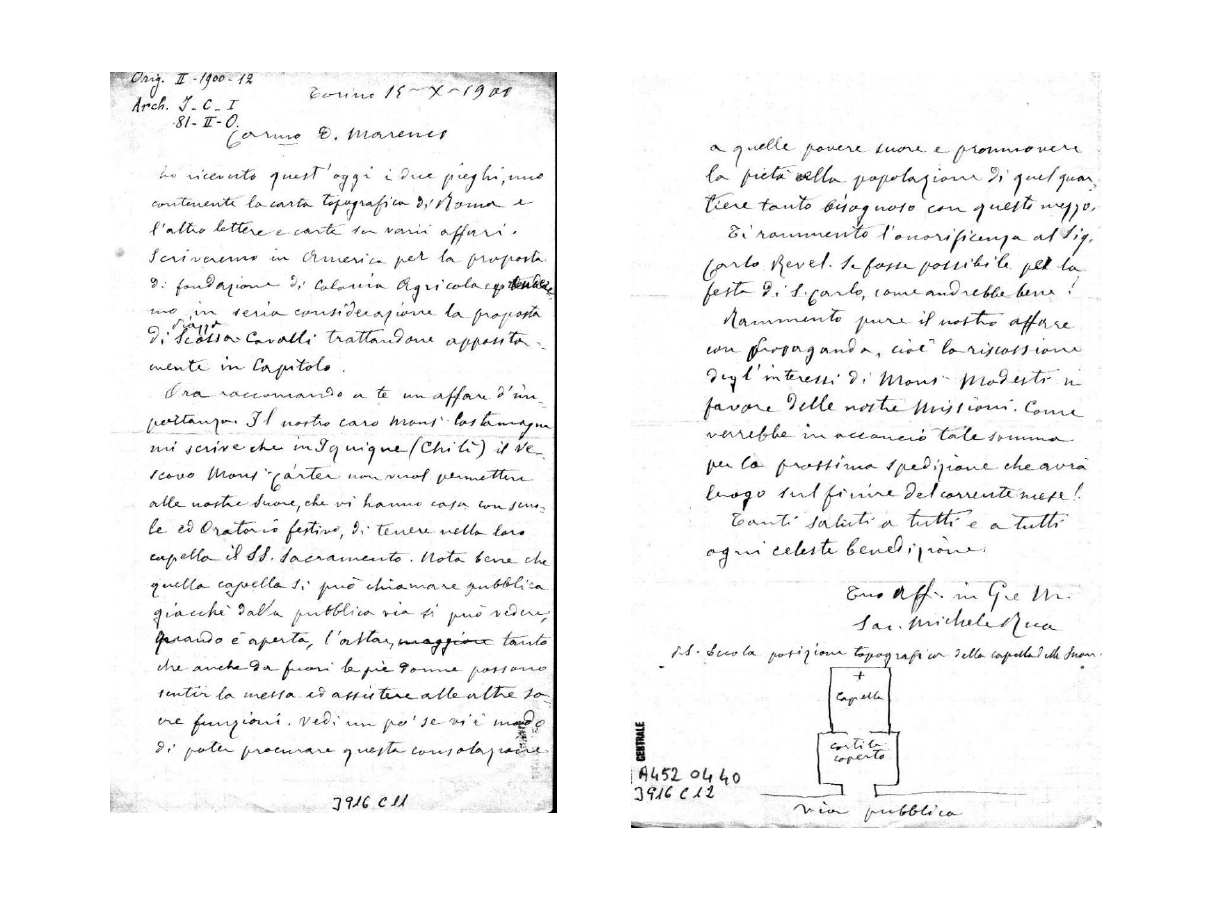 Orig. II-1900-12
Arch. J-C-I
81-II-O.
Torino 15-X-1900
Carmo D. Marenco
ho ricevuto quest'oggi i due pieghi, uno
contenente la carta topografica di Roma e
l'altro lettere e carte su varii affari.
Scriveremo in America per la proposta
di fondazione di Colonia Agricola e
mo in seria considerazione la proposta
di piazza Scossa-Cavalli trattandone apposita-
mente in Capitolo.
Ora raccomando a te un affare d'im-
portanza. Il nostro caro Mons. Costamagna
mi scrive che in Iquique (Chilì) il Ve-
scovo Mons. Carter non vuol permettere
alle nostre Suore, che vi hanno casa con scuo-
le ed Oratorio festivo, di tenere nella loro
capella il SS. Sacramento. Nota bene che
quella capella si può chiamare pubblica
giacchè dalla pubblica via si può vedere,
quando è aperta, l'altar, maggiore tanto
che anche da fuori le pie donne possono
sentir la messa ed assistere alle altre sa-
cre funzioni. Vedi un po' se vi è modo
di poter procurare questa consolazione
J916 C11
a quelle povere suore e promuovere
la pietà nella popolazione di quel quar-
tiere tanto bisognoso con questo mezzo.
Ti rammento l'onorificenza al Sig.
Carlo Revel. Se fosse possibile pel la
festa di S. Carlo, come andrebbe bene!
Rammento pure il nostro affare
con Propaganda, cioè la riscossione
degl'interessi di Mons. Modesti in
favore delle nostre Missioni. Come
verrebbe in acconcio tale somma
per la prossima spedizione che avrà
luogo sul finire del corrente mese!
Tanti saluti a tutti e a tutti
ogni celeste benedizione.
Tuo aff. in G. e M.
Sac. Michele Rua
P.S. Eccola posizione topografica della capella delle Suore.
+
Capella
cortile
coperto
via pubblica
CENTRALE
A452 0440
J916 C12